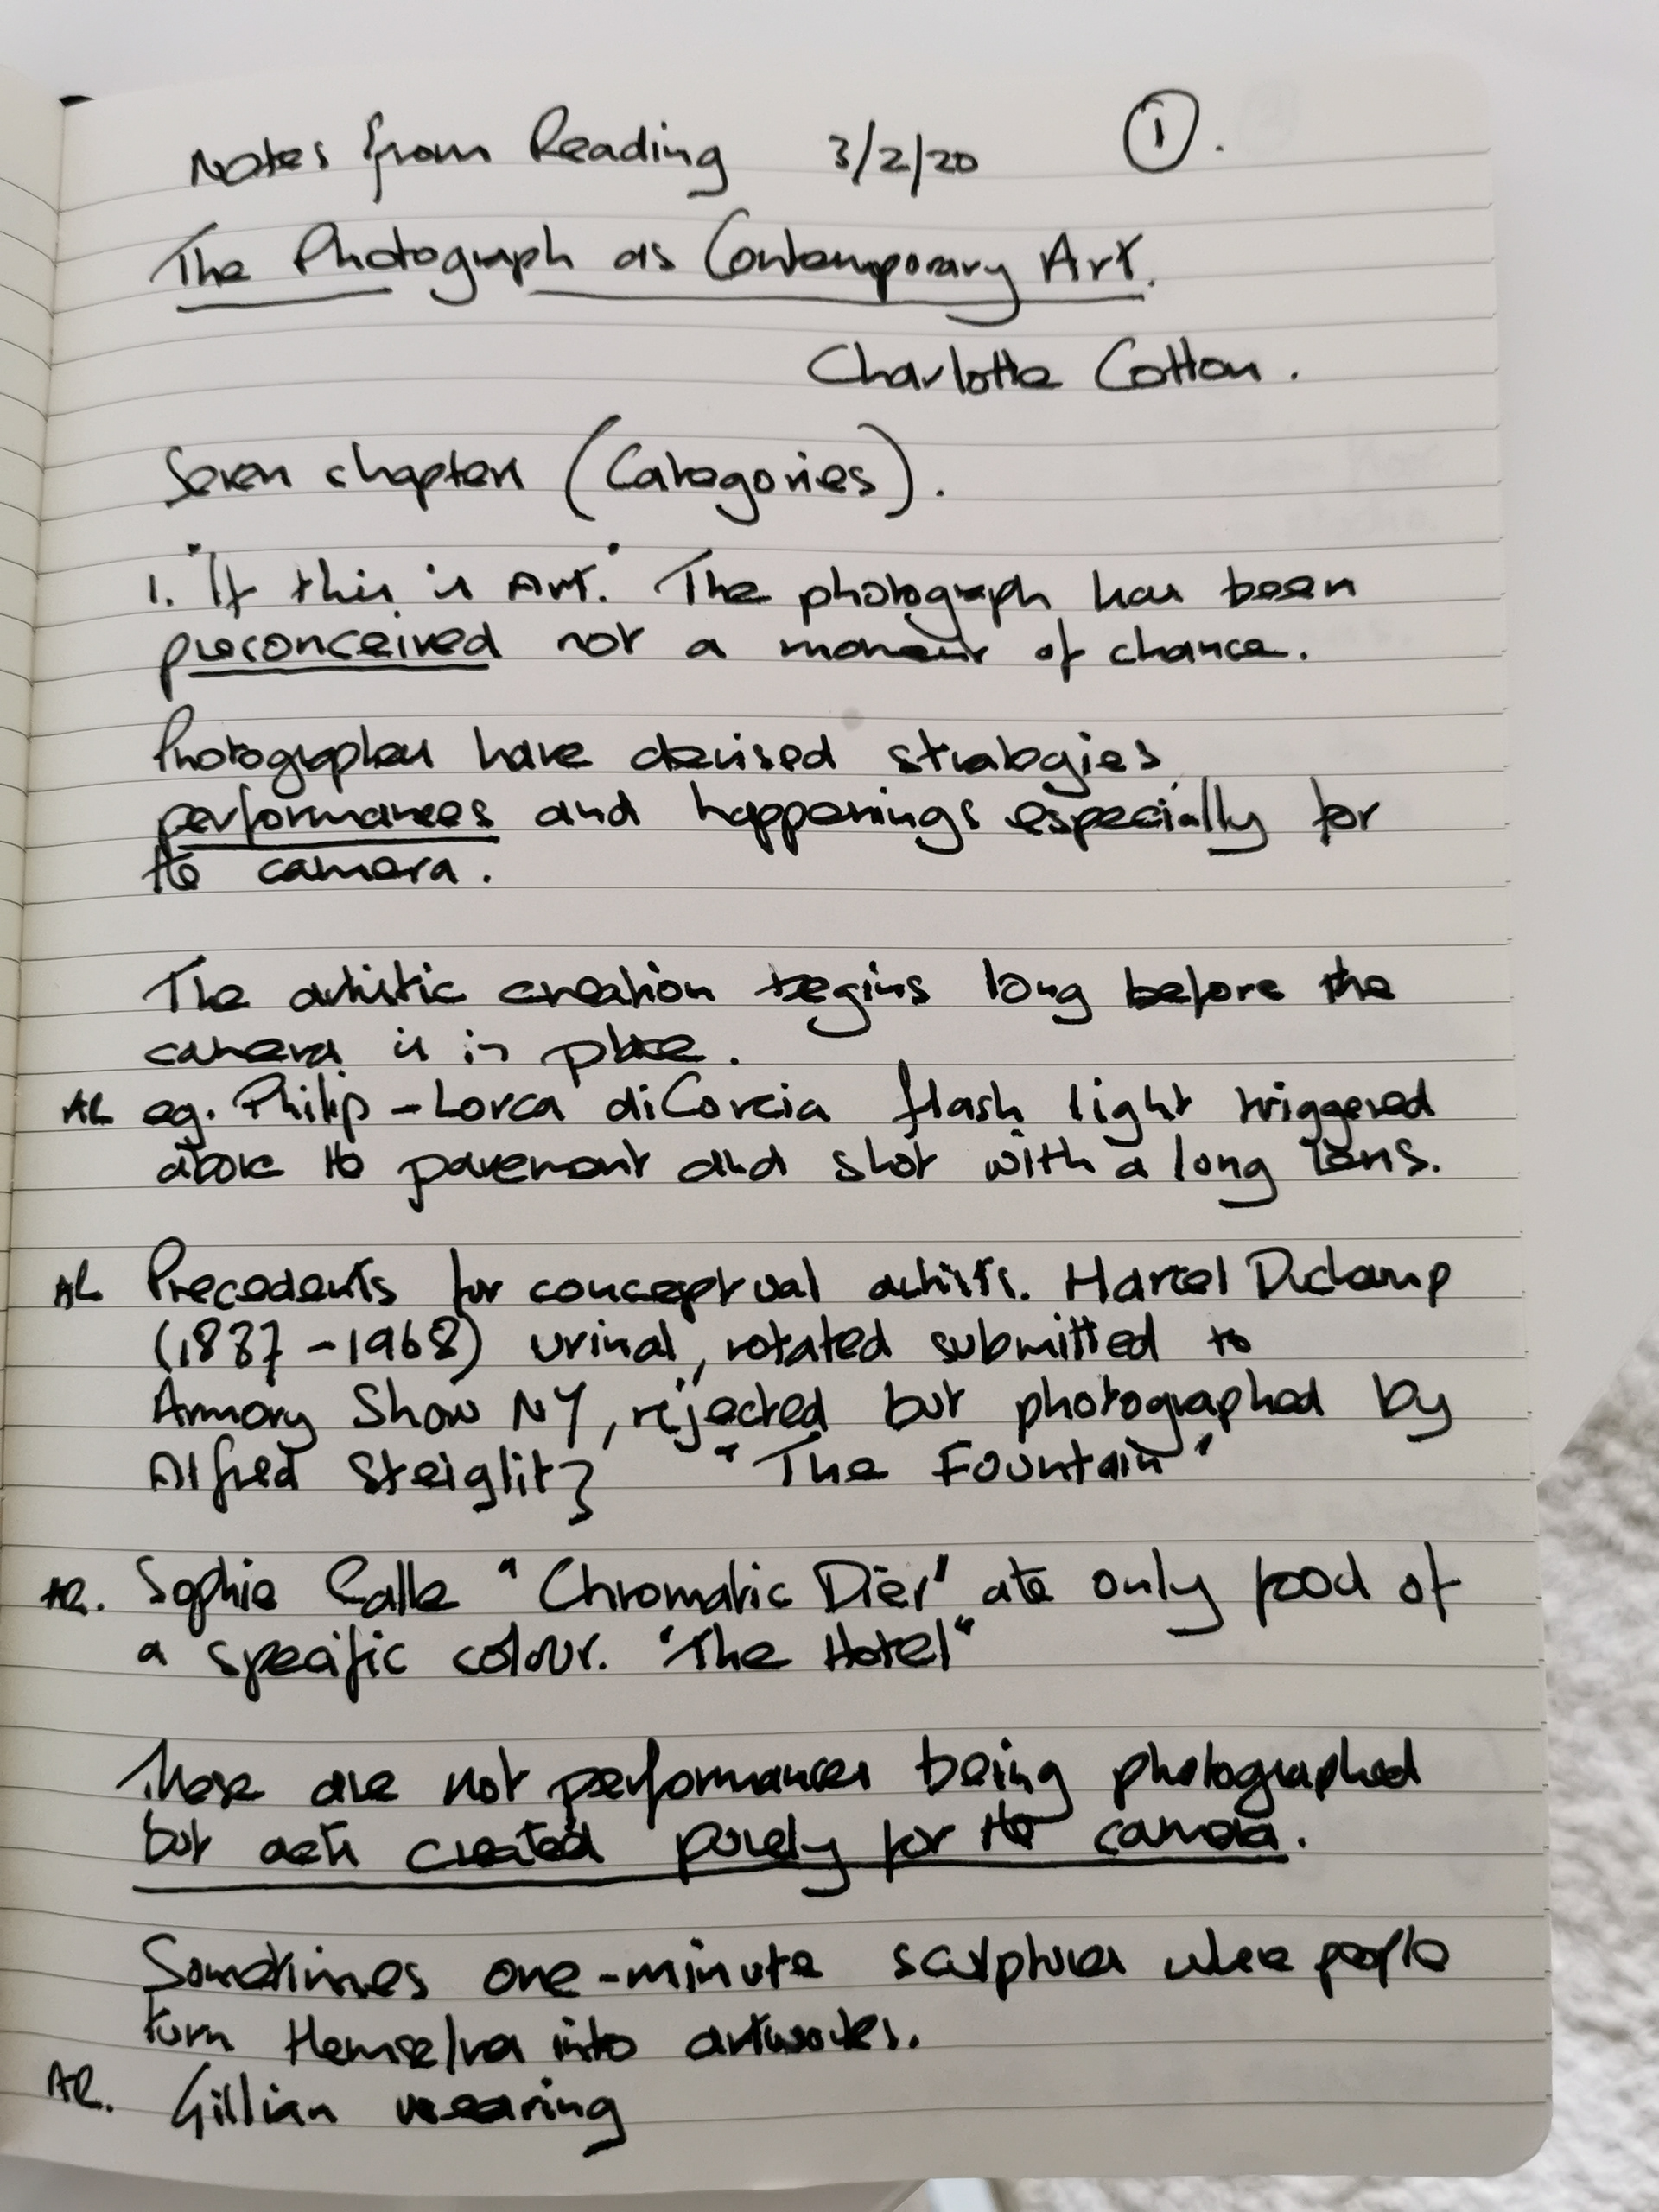 Notes from Reading 3/2/20 ①.
The Photograph as Contemporary Art.
Charlotte Cotton.
Seven chapters (Categories).
1. "If this is Art." The photograph has been
preconceived not a moment of chance.
Photographers have devised strategies,
performances and happenings especially for
the camera.
The artistic creation begins long before the
camera is in place.
AR eg. Philip-Lorca diCorcia flash light triggered
above the pavement and shot with a long lens.
AR Precedents for conceptual artists. Marcel Duchamp
(1887-1968) urinal, rotated submitted to
Armory Show NY, rejected but photographed by
Alfred Steiglitz "The Fountain"
AR. Sophie Calle "Chromatic Diet" ate only food of
a specific colour. "The Hotel"
These are not performances being photographed
but acts created purely for the camera.
Sometimes one-minute sculptures where people
turn themselves into artworks.
AR. Gillian wearing